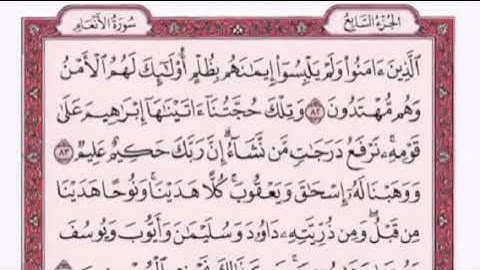 سُورَةُ الأَنْعَامِ
الجُزْءُ السَّابِعُ
الَّذِينَ ءَامَنُوا۟ وَلَمْ يَلْبِسُوٓا۟ إِيمَٰنَهُم بِظُلْمٍ أُو۟لَٰٓئِكَ لَهُمُ الْأَمْنُ
وَهُم مُّهْتَدُونَ ٨٢ وَتِلْكَ حُجَّتُنَآ ءَاتَيْنَٰهَآ إِبْرَٰهِيمَ عَلَىٰ
قَوْمِهِۦ نَرْفَعُ دَرَجَٰتٍ مَّن نَّشَآءُ إِنَّ رَبَّكَ حَكِيمٌ عَلِيمٌ ٨٣
وَوَهَبْنَا لَهُۥٓ إِسْحَٰقَ وَيَعْقُوبَ كُلًّا هَدَيْنَا وَنُوحًا هَدَيْنَا
مِن قَبْلُ وَمِن ذُرِّيَّتِهِۦ دَاوُۥدَ وَسُلَيْمَٰنَ وَأَيُّوبَ وَيُوسُفَ